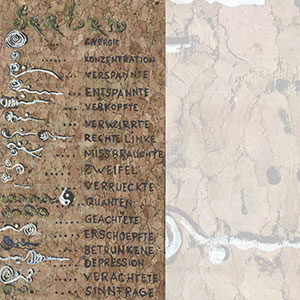 Seelen
ENERGIE
KONZENTRATION
VERSPANNTE
ENTSPANNTE
VERKOPFTE
VERWIRRTE
RECHTE LINKE
MISSBRAUCHTE
ZWEIFEL
VERRUECKTE
QUANTEN
GEACHTETE
ERSCHOEPFTE
BETRUNKENE
DEPRESSION
VERACHTETE
SINNFRAGE